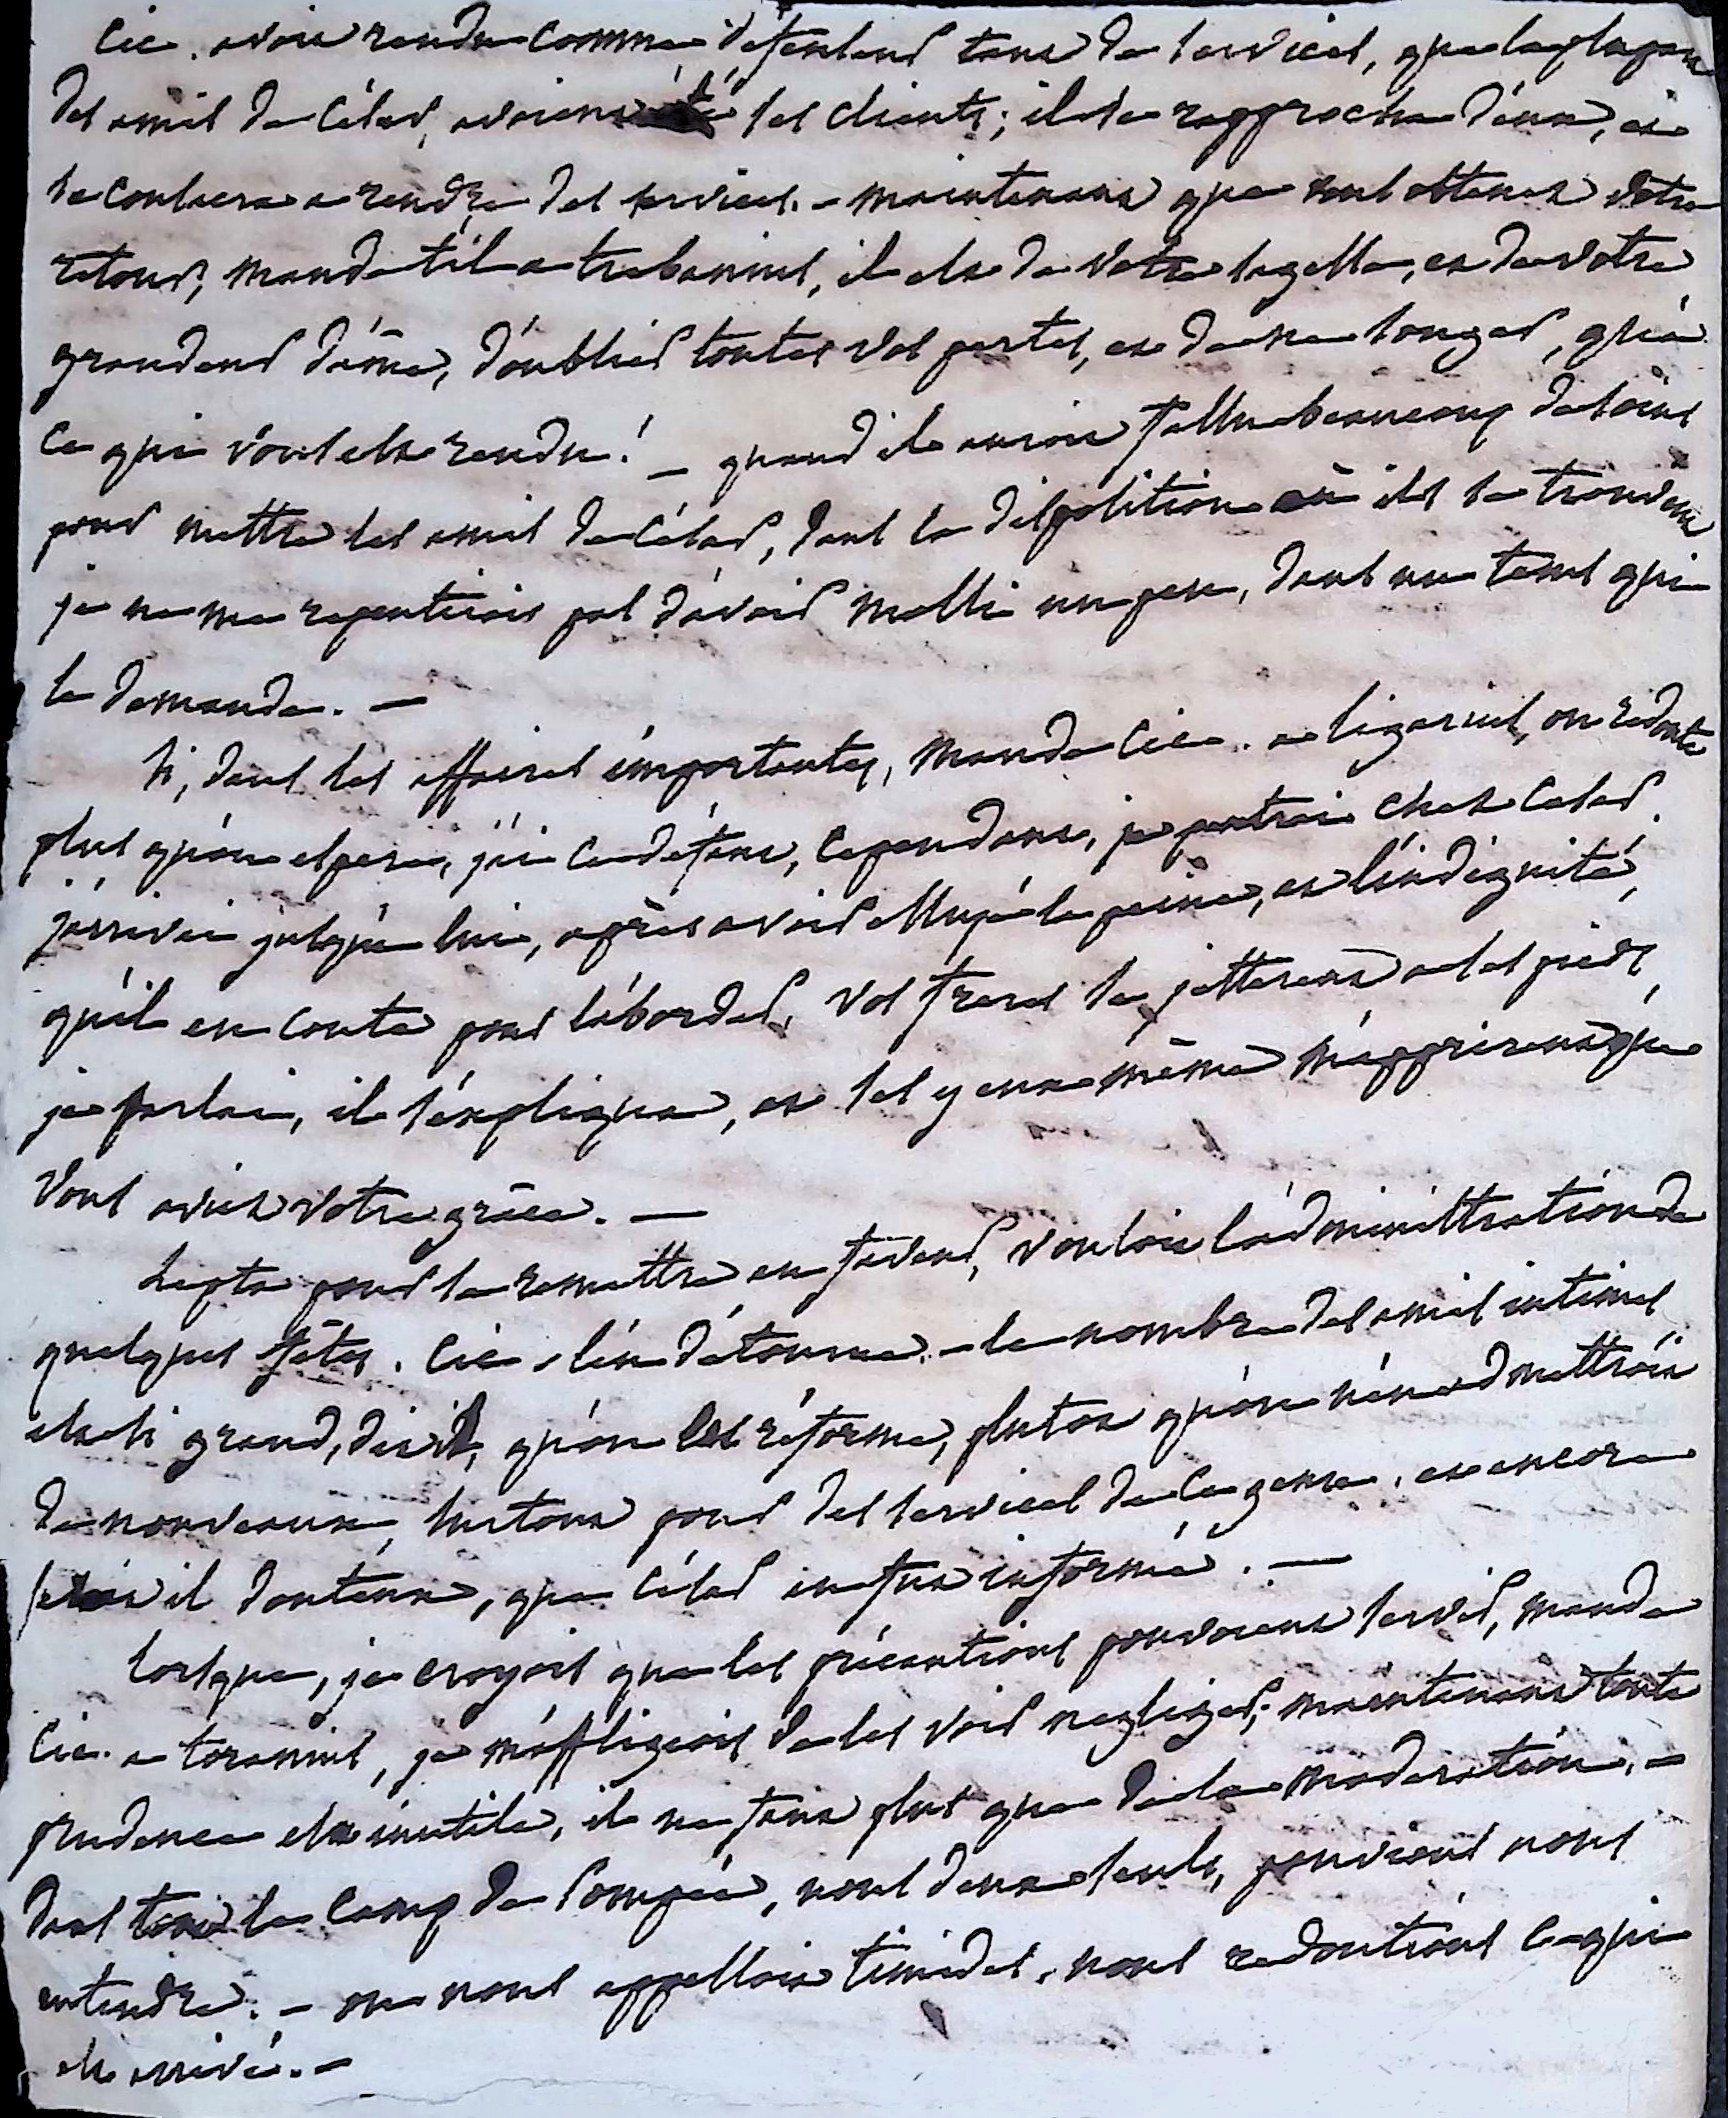 Cic. avoit rendu comme défenseur tant de services, que la plupart
des amis de César, avoient été ses clients; il se rapprocha d'eux, et
se consacra a rendre des services. - maintenant que vous obtenez votre
retour, mande t'il a trebonius, il est de votre sagesse, et de votre
grandeur d'âme, d'oublier toutes vos pertes, et de ne songer, qu'à
ce qui vous est rendu! - quand il auroit fallu beaucoup de soins
pour mettre les amis de César, dans la disposition où ils se trouvent
je ne me repentirois pas d'avoir molli un peu, dans un tems qui
le demande. -
Si, dans les affaires importantes, mande Cic. a ligarius, on redoute
plus qu'on espere, j'ai ce défaut, cependant, je pentrai chez Cesar.
j'arrivai jusqu'a lui, après avoir essuyé la peine, et l'indignité,
qu'il en coute pour l'aborder, vos freres se jetterent a ses pieds,
je parlai, il s'expliqua, et ses yeux même m'apprirent que
vous aviez votre grâce. -
Lepta pour se remettre en faveur, vouloit l'administration de
quelques fêtes. Cic. l'en détourna. - le nombre des amis intimes
est si grand, dit il, qu'on les réforme, plutot qu'on n'en admettroit
de nouveaux, surtout pour des services de ce genre, et encore
il doutent, que César en fut informé. -
Lorsque, je croyois que les précautions pouvoient servir, mande
Cic. a toranius, je m'affligeois de les voir negliger; maintenant toute
prudence est inutile, il ne faut plus que de la moderation. -
dans tout le camp de Pompée, nous deux seuls, pouvions nous
entendre. - on nous appelloit timides, nous redoutions ce qui
est arrivé. -